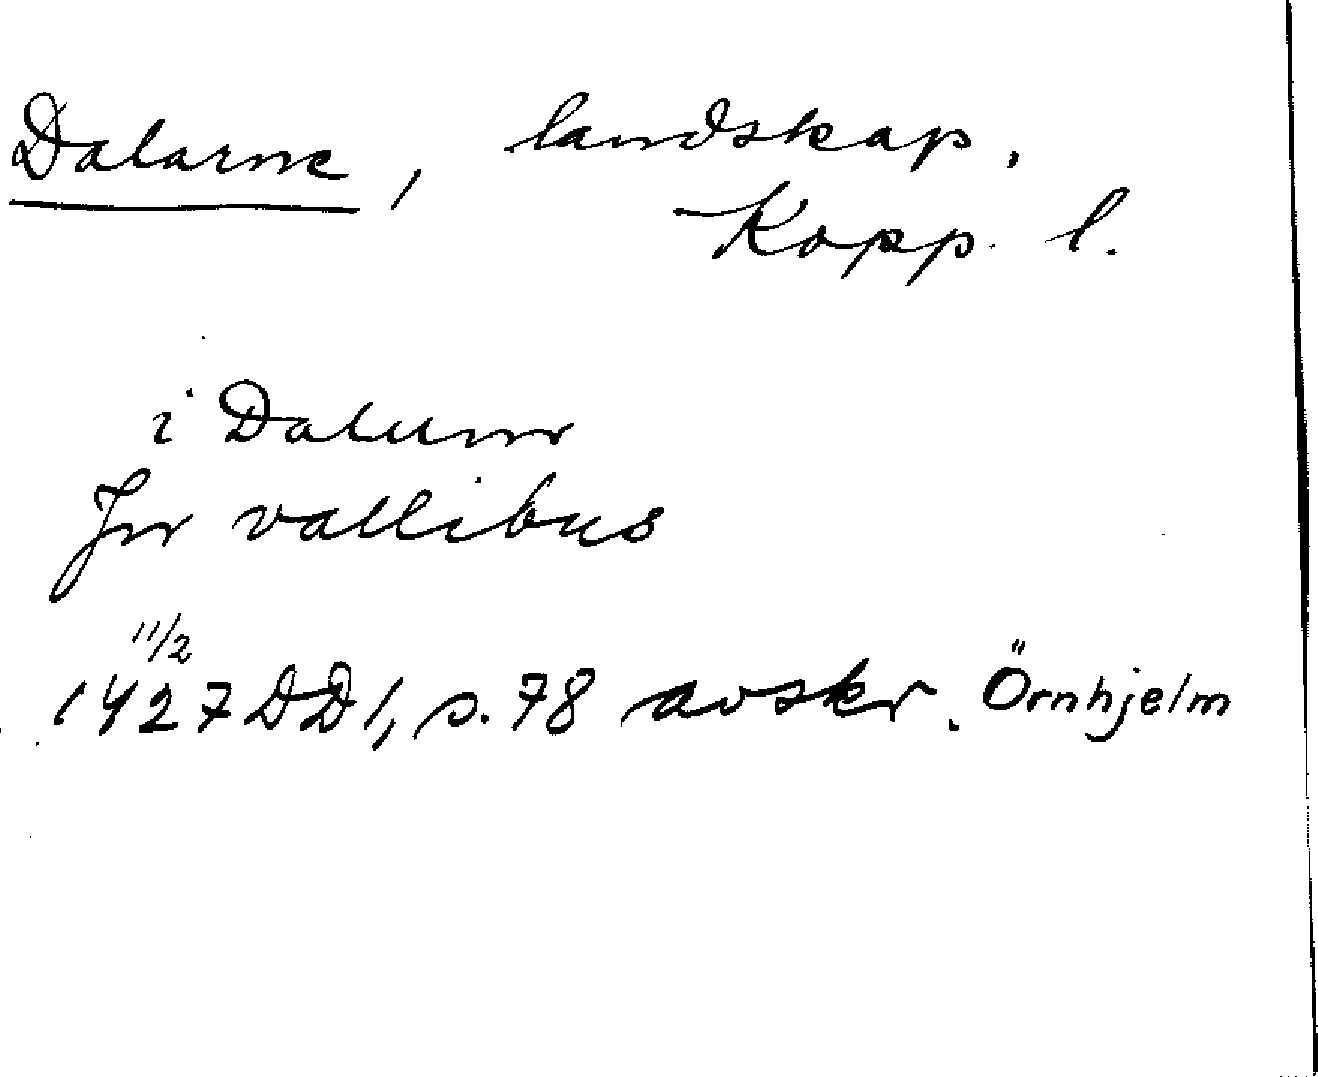 Dalarne, landskap.
Kopp. l.
i Dalum
Jn vallibus
11/2
1427 DD1, s. 78 avskr. Örnhjelm